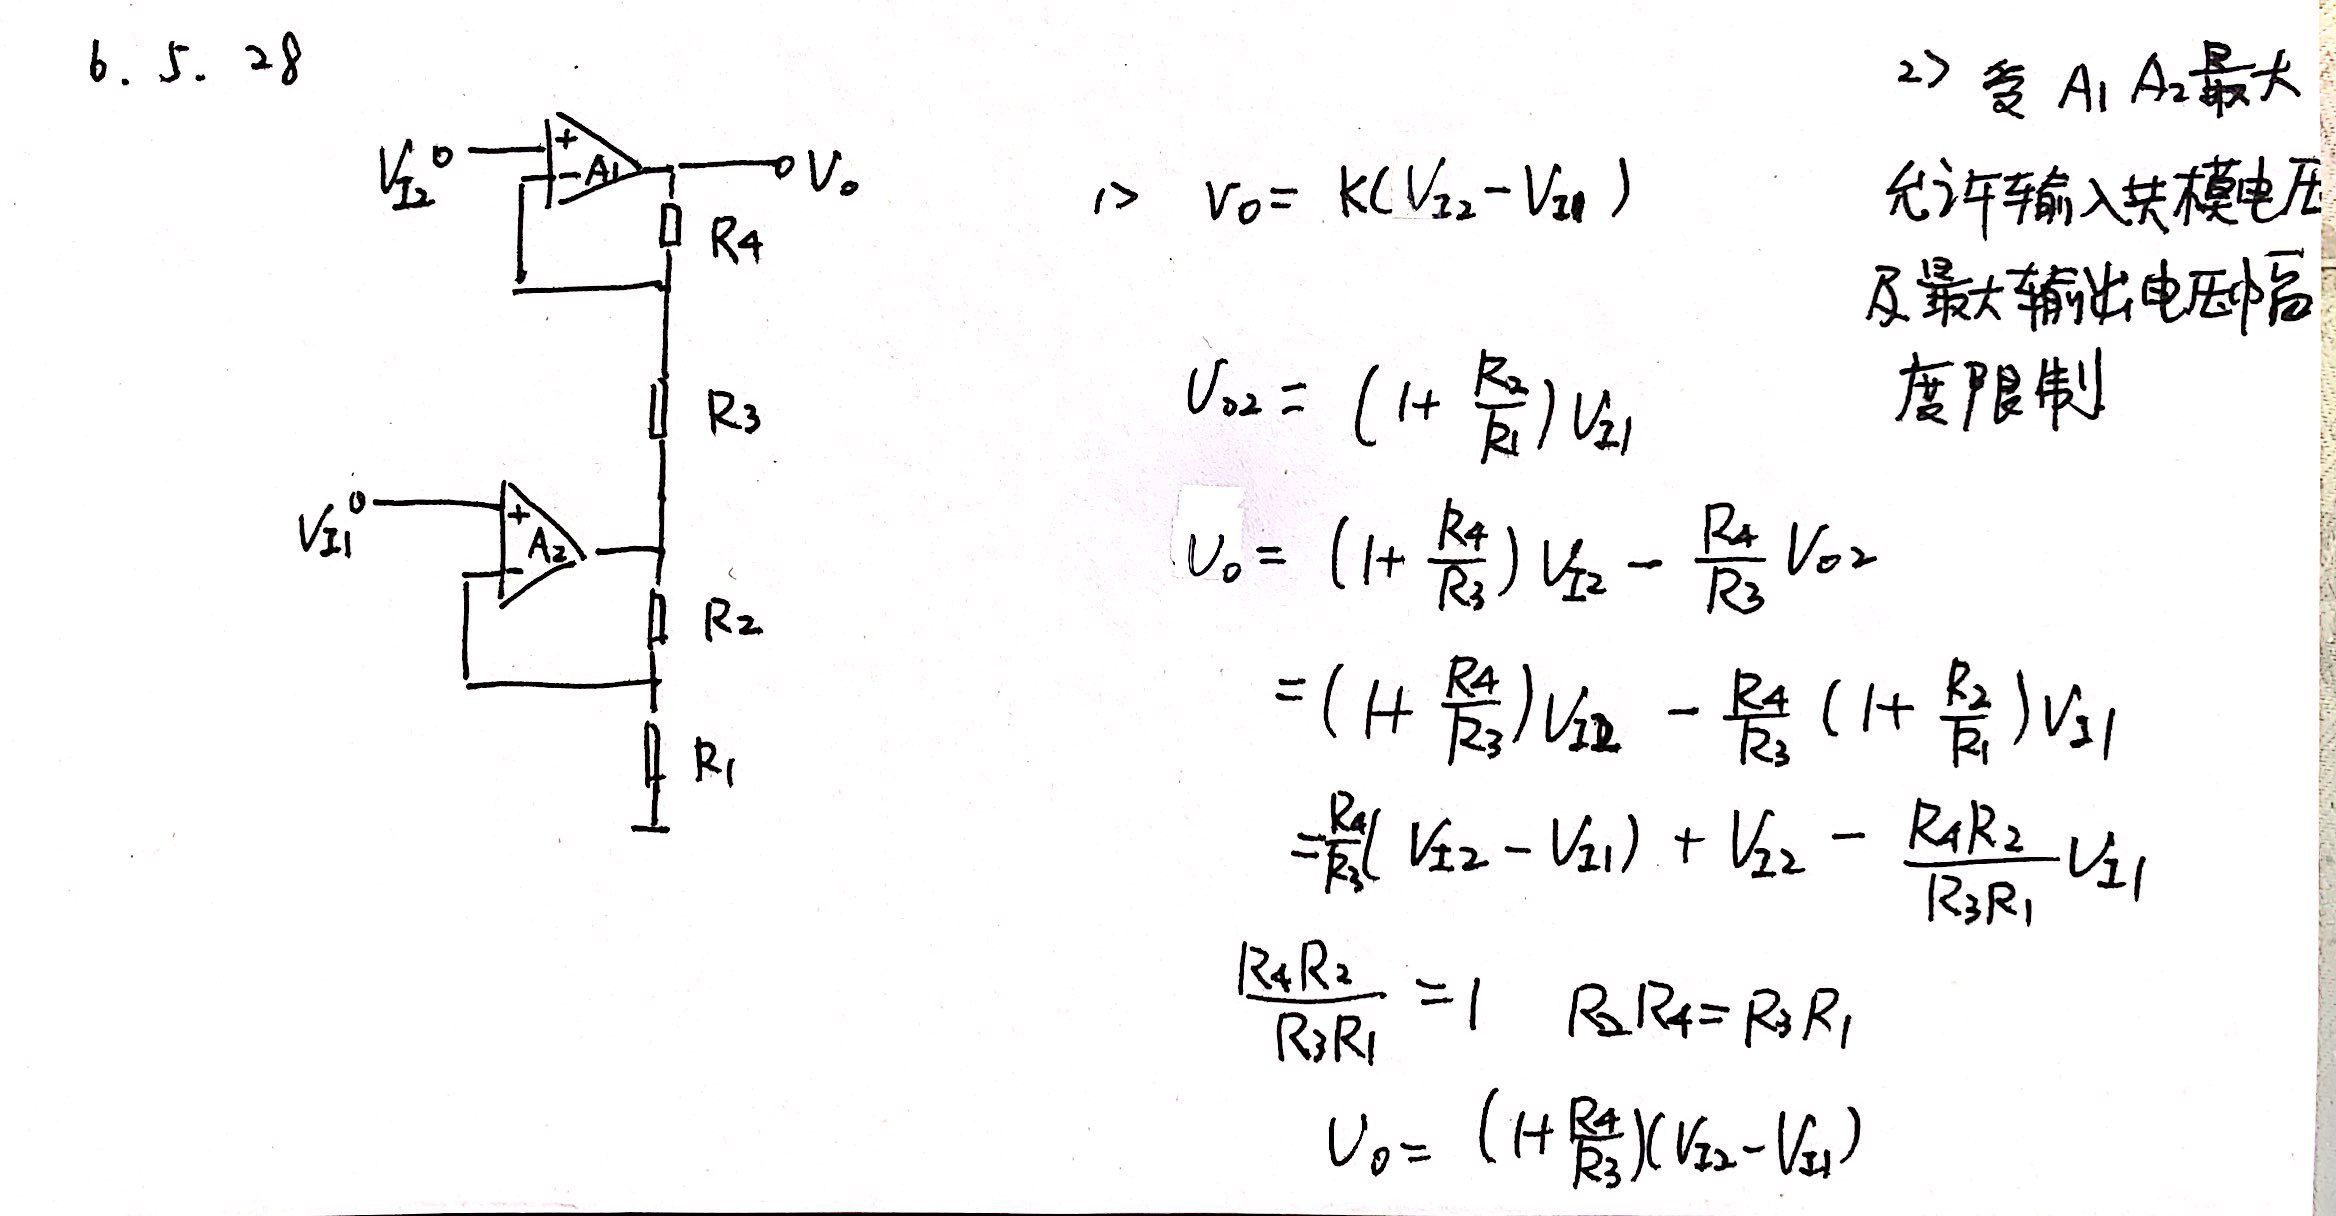 6.5.28
V_I2
+
-
A1
V_o
R4
R3
V_I1
+
-
A2
R2
R1
1> V_o = K(V_I2 - V_I1)
U_o2 = (1 + R2/R1) V_I1
U_o = (1 + R4/R3) V_I2 - R4/R3 V_o2
= (1 + R4/R3) V_I2 - R4/R3 (1 + R2/R1) V_I1
= R4/R3 (V_I2 - V_I1) + V_I2 - R4R2/R3R1 U_I1
R4R2/R3R1 = 1 R2R4 = R3R1
U_o = (1 + R4/R3)(V_I2 - V_I1)
2> 受 A1 A2最大
允许输入共模电压
及最大输出电压幅
度限制